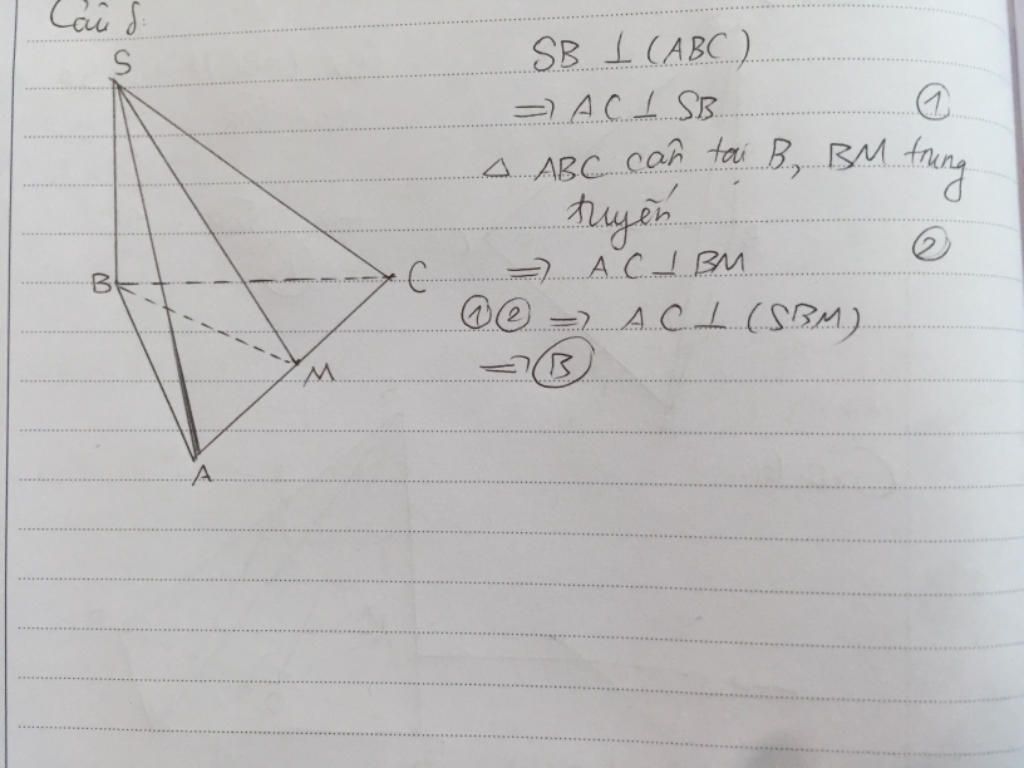 Câu 8:
S
B
C
M
A
SB ⊥ (ABC)
=> AC ⊥ SB ①
△ ABC cân tại B, BM trung
tuyến
=> AC ⊥ BM ②
①② => AC ⊥ (SBM)
=> Ⓑ